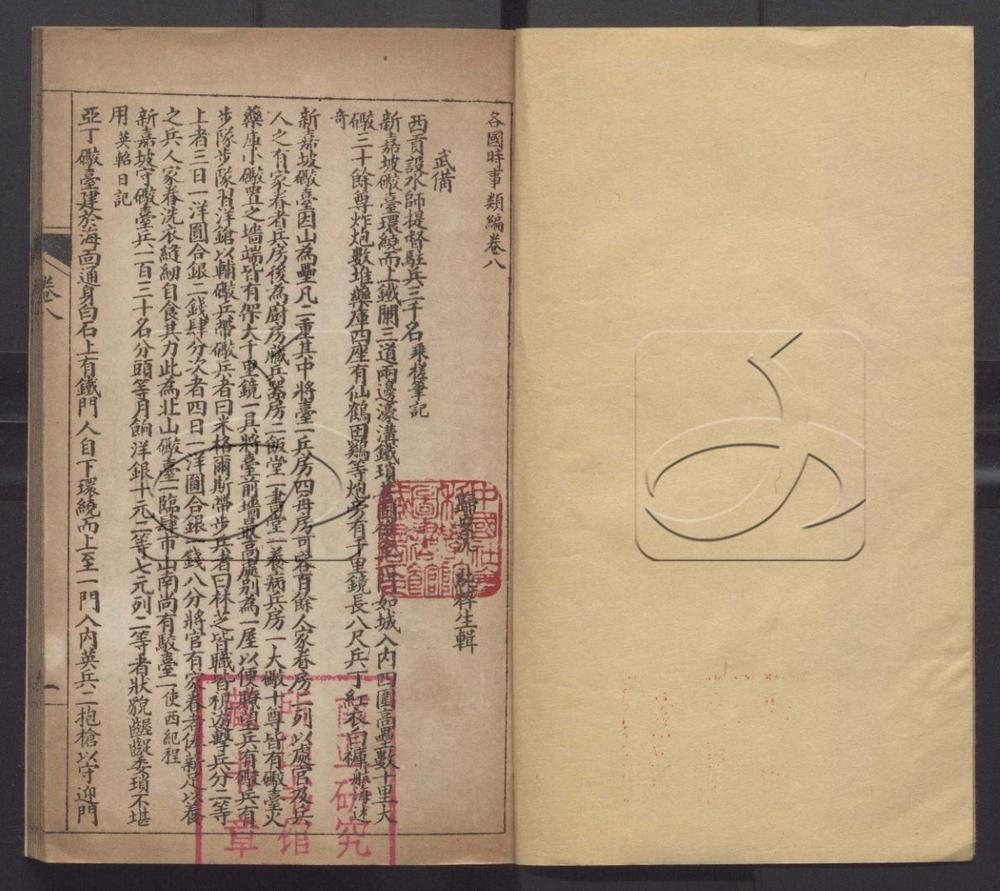 各國時事類編卷八
歸安沈 純粹生輯
武備
西貢設水師提督駐兵三千名乘槎筆記
新嘉坡礮臺環繞而上鐵閘三道兩邊濠溝鐵瑣 如城入內四圍高壘數十里大
礮三十餘尊炸炮數堆藥庫四座有仙鶴田鷄等炮旁有千里鏡長八尺兵丁紅衣白褲航海述
奇
新嘉坡礮臺因山為壘凡二重其中將臺一兵房四毋房可容百餘人家眷房二列以處官及兵
人之有家眷者兵房後為廚房藏兵器房二飯堂一書堂一養病兵房一大礮十尊皆有礮臺火
藥庫小礮置之墙端皆有架大千里鏡一具將臺前墻最高處別為一屋以便瞭望兵有礮兵有
步隊步隊習洋鎗以輔礮兵帶礮兵者曰米格爾斯帶步兵者曰林芝皆職皆初遊擊兵分二等
上者三日一洋圓合銀二錢肆分次者四日一洋圓合銀一錢八分將官有家眷者俸薪足以養
之兵人家眷洗衣縫紉自食其力此為北山礮臺一臨肆市山南尚有駮臺一使西紀程
新嘉坡守礮臺兵一百三十名分頭等月餉洋銀十元二等七元列二等者狀貌齷齪委瑣不堪
用 英軺日記
亞丁礮臺建於海面通身白石上有鐵門人自下環繞而上至一門入內英兵二抱槍以守迎門
卷八
一
中國社
圖書館
研究
所
館
藏
章